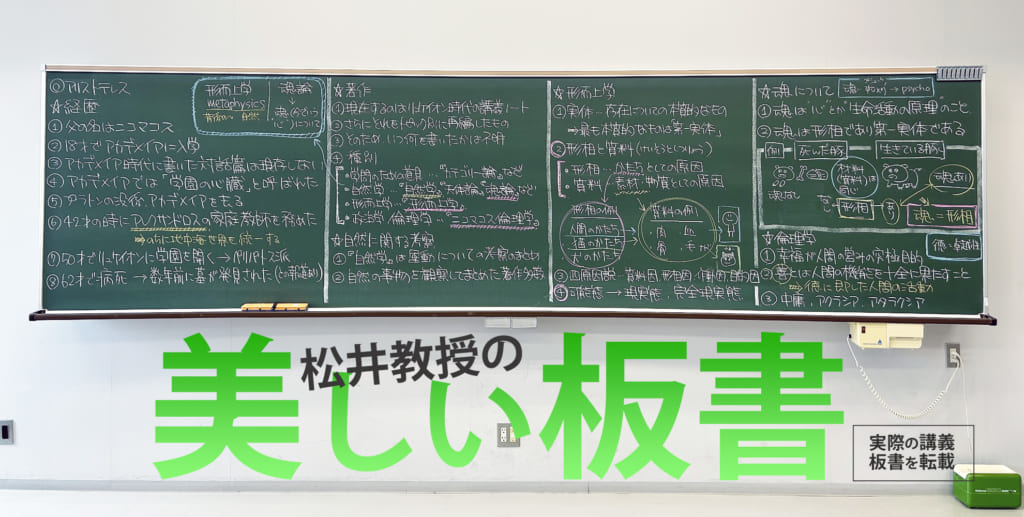 ◎アリストテレス
☆経歴
①父の名はニコマコス
②18才でアカデメイアに入学
③アカデメイア時代に書いた対話篇は現存しない
④アカデメイアでは“学園の心臓”と呼ばれた
⑤プラトンの没後、アカデメイアを去る
⑥42才の時にアレクサンドロスの家庭教師を務めた
⇒のちに地中海世界を統一する
⑦50才でリュケイオンに学園を開く→ペリパトス派
⑧62才で病死→数年前に墓が発見された(との報道あり)
形而上学
metaphysics
自然
魂論
↓
魂
について
☆著作
①現存するのはリュケイオン時代の講義ノート
②さらにそれを後の別に再編したもの
③そのため、いつ何を書いたかは不明
④種別
学問のための道具…“カテゴリー論”など
自然学…“自然学”“天体論”“魂論”など
形而上学…“形而上学”
政治学/倫理学…“ニコマコス倫理学”
☆自然に関する考察
①“自然学”は運動についての考察のまとめ
②自然の事物を観察してまとめた著作多数
☆形而上学
①実体…存在についての本質的なもの
⇒最も本質的なものは“第一実体”
②形相と質料(けいそうとしつりょう)
形相…かたちとしての原因
質料…素材・物質としての原因
形相の例
人間のかたち
猫のかたち
犬のかたち
質料の例
肉 血
骨 毛
③四原因説…質料因・形相因・作用因・目的因
④可能態→現実態、完全現実態
☆魂について
魂 → psycho
①魂は“心”とか“生命活動の原理”のこと
②魂は形相であり第一実体である
例 死んだ豚 生きている豚
材料
(質料)は
同じ
魂なし
形相
魂あり
魂=形相
☆倫理学
徳・卓越性
①幸福が人間の営みの究極目的
②善とは人間の機能を十全に果たすこと
⇒徳に即した人間の活動
③中庸、アクラシア、アタラクシア
松井教授の
美しい板書
実際の講義
板書を転載